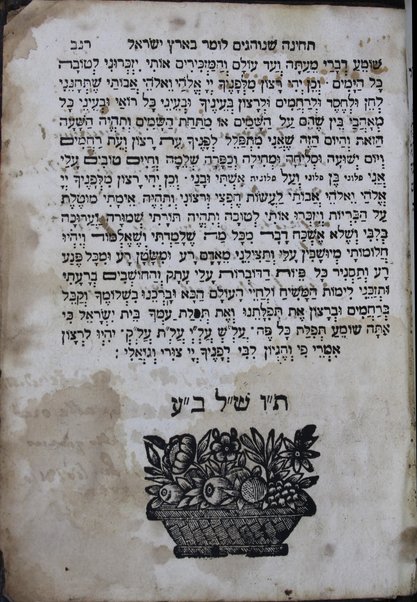 תחינה שנוהגים לומר בארץ ישראל רנב
שׁוֹמֵעַ דְּבָרַי מֵעַתָּה וְעַד עוֹלָם וְהַמַּזְכִּירִים אוֹתִי יִזְכְּרוּנִי לְטוֹבָה
כָּל הַיָּמִים וְכֵן יְהִי רָצוֹן מִלְּפָנֶיךָ יְיָ אֱלֹהַי וֵאלֹהֵי אֲבוֹתַי שֶׁתִּתְּנֵנִי
לְחֵן וּלְחֶסֶד וּלְרַחֲמִים וּלְרָצוֹן בְּעֵינֶיךָ וּבְעֵינֵי כָּל רוֹאַי וּבְעֵינֵי כָּל
מְאַהֲבַי בֵּין שֶׁהֵם עַל הַשָּׁמַיִם אוֹ מִתַּחַת הַשָּׁמַיִם וּתְהֵיה הַשָּׁעָה
הַזֹּאת וְהַיּוֹם הַזֶּה שֶׁאֲנִי מִתְפַּלֵּל לְפָנֶיךָ עֵת רָצוֹן וְעֵת רַחֲמִים
וְיוֹם יְשׁוּעָה וּסְלִיחָה וּמְחִילָה וְכַפָּרָה שְׁלֵמָה וְחַיִּים טוֹבִים עָלַי
אֲנִי פלוני בֶּן פלוני וְעַל פלונית אִשְׁתִּי וּבָנַי וְכֵן יְהִי רָצוֹן מִלְּפָנֶיךָ יְיָ
אֱלֹהַי וֵאלֹהֵי אֲבוֹתַי לַעֲשׂוֹת חֶפְצִי וּרְצוֹנִי וּתְהִיה אֵימָתִי מוּטֶּלֶת
עַל הַבְּרִיּוֹת וְיִזְכְּרוּ אוֹתִי לְטוֹבָה וּתְהֵיה תּוֹרָתִי שְׁמוּרָה וַעֲרוּכָה
בְּלִבִּי וְשֶׁלֹּא אֶשְׁכַּח דָּבָר מִכָּל מַה שֶּׁלָּמַדְתִּי וּשְׁאֶלְמוֹד וְיִהְיוּ
חֲלוֹמוֹתַי מְיוּשָּׁבִין עָלַי וְתַצִּילֵנִי מֵאָדָם רָע וּמִשָּׂטָן רָע וּמִכָּל פֶּגַע
רָע וְתַסְכִּיר כָּל פִּיּוֹת הַדּוֹבְרוֹת עָלַי עָתָק וְהַחוֹשְׁבִים בְּרָעָתִי
וּתְזַכֵּנִי לִימוֹת הַמָּשִׁיחַ וּלְחַיֵּי הָעוֹלָם הַבָּא וּבָרְכֵנוּ בִּשְׁלוֹמֶךָ וְקַבֵּל
בְּרַחֲמִים וּבְרָצוֹן אֶת תְּפִלָּתֵנוּ וְאֶת תְּפִלַּת עַמְּךָ בֵּית יִשְׂרָאֵל כִּי
אַתָּה שׁוֹמֵעַ תְּפִלַּת כָּל פֶּה יִהְיוּ לְרָצוֹן
אִמְרֵי פִי וְהֶגְיוֹן לִבִּי לְפָנֶיךָ יְיָ צוּרִי וְגוֹאֲלִי׃
ת״ו ש״ל ב״ע